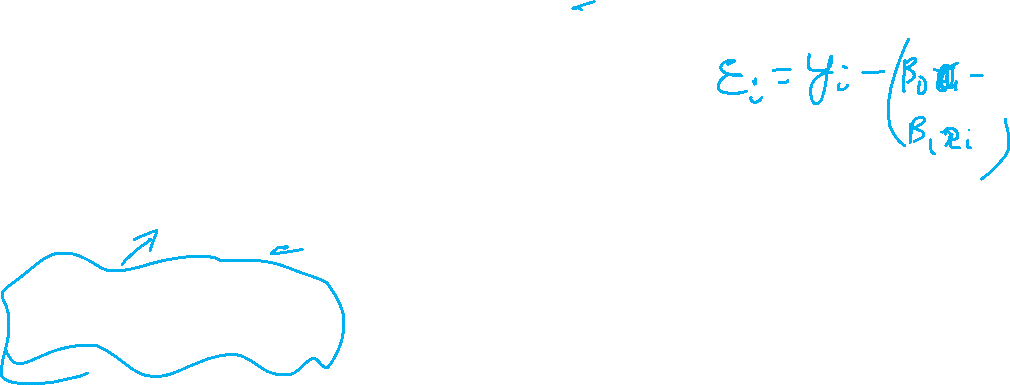 εᵢ = yᵢ − (β₀ −
β₁xᵢ)